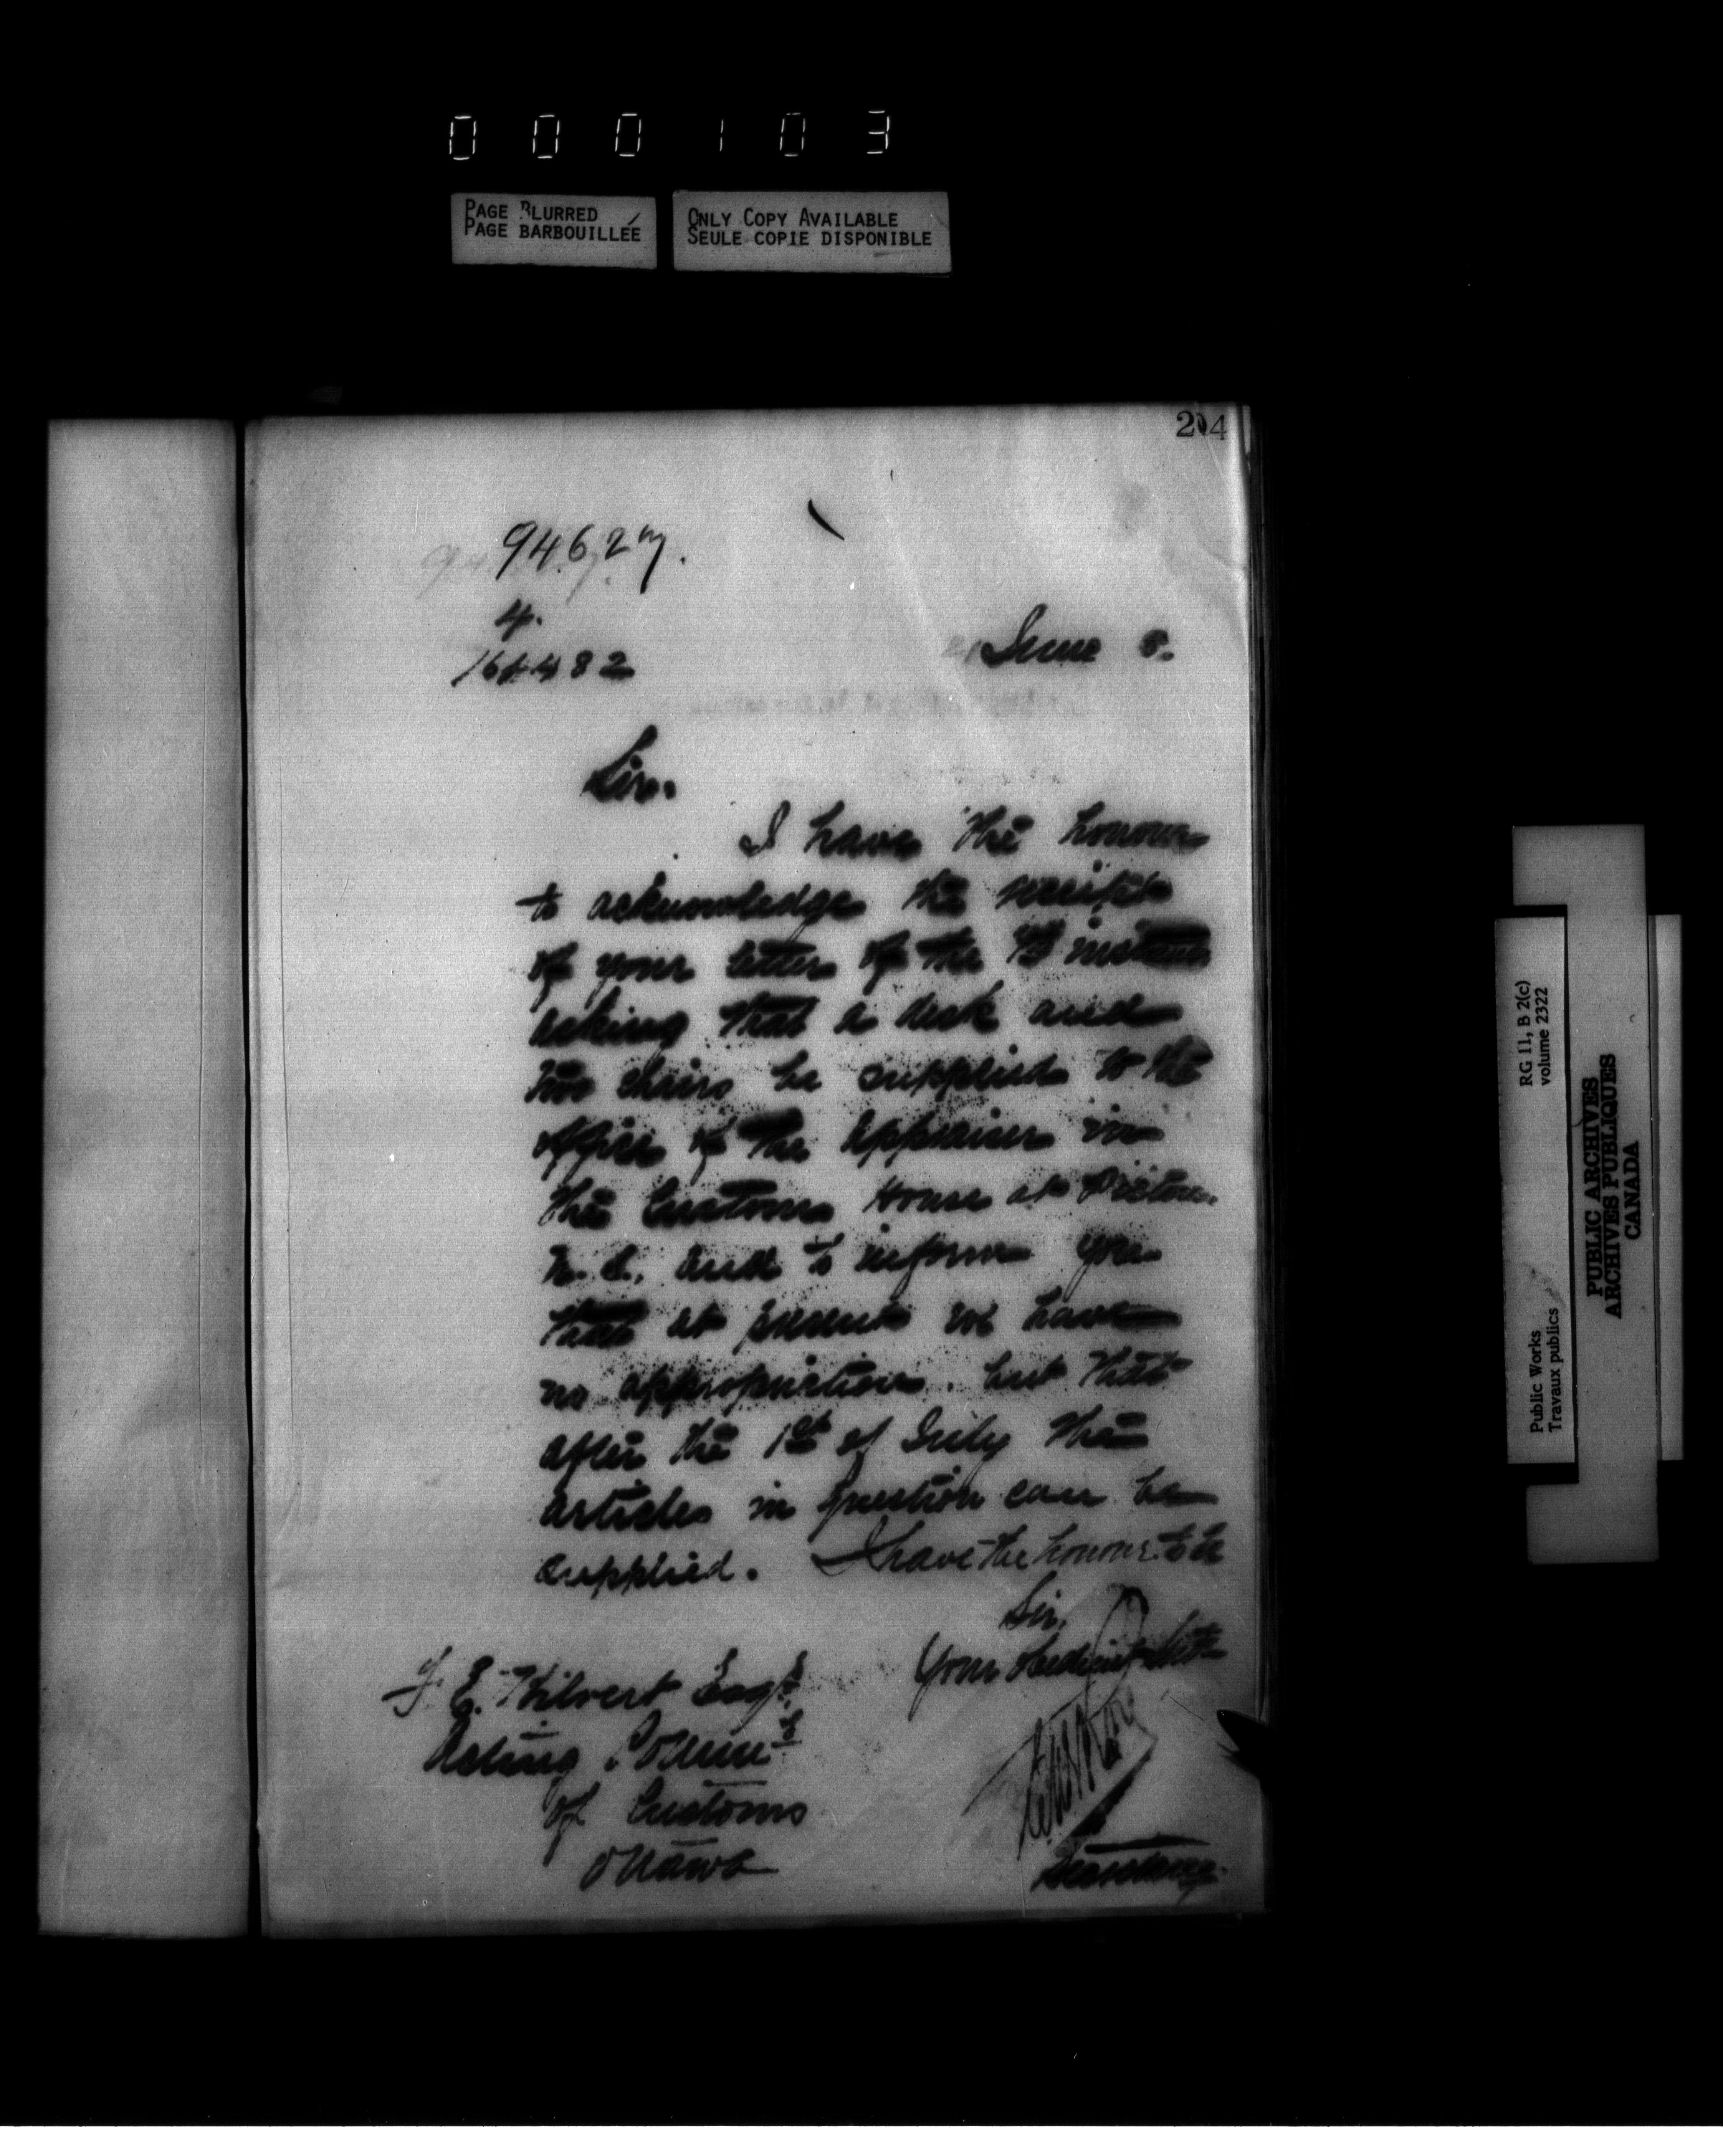 000103
PAGE BLURRED
PAGE BARBOUILLÉE
ONLY COPY AVAILABLE
SEULE COPIE DISPONIBLE
204
94627.
4.
June 8.
Sir.
I have the honour
to acknowledge the receipt
of your letter of the instant
asking that a desk and
two chairs be supplied to the
office of the Appraiser in
the Customs House at Pictou.
N.S. and to inform you
that at present we have
no appropriation. but that
after the 1st of July the
articles in question can be
supplied. I have the honour to be
Sir,
Your obedient
F. E. Kilvert Esqr.
Acting Commr
of Customs
Ottawa
Secretary.
RG 11, B 2(c)
volume 2322
Public Works
Travaux publics
PUBLIC ARCHIVES
ARCHIVES PUBLIQUES
CANADA